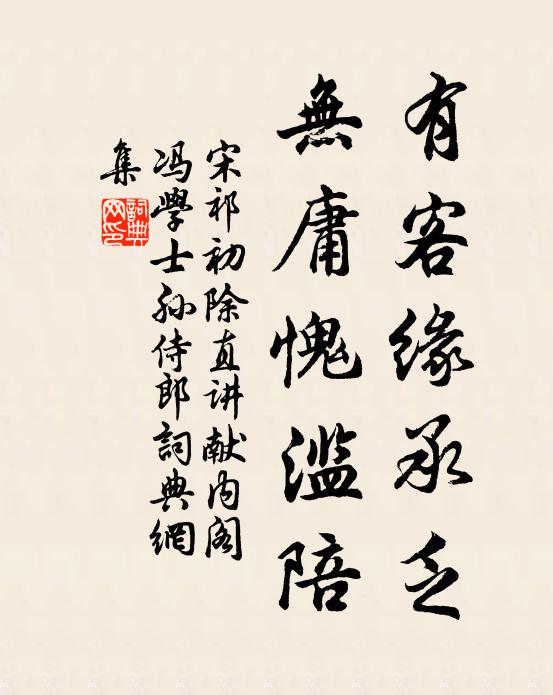 有客缘承乏
無庸愧滥陪
宋祁初除直讲献内阁
冯學士孙侍郎詞典網
集
詞典網印